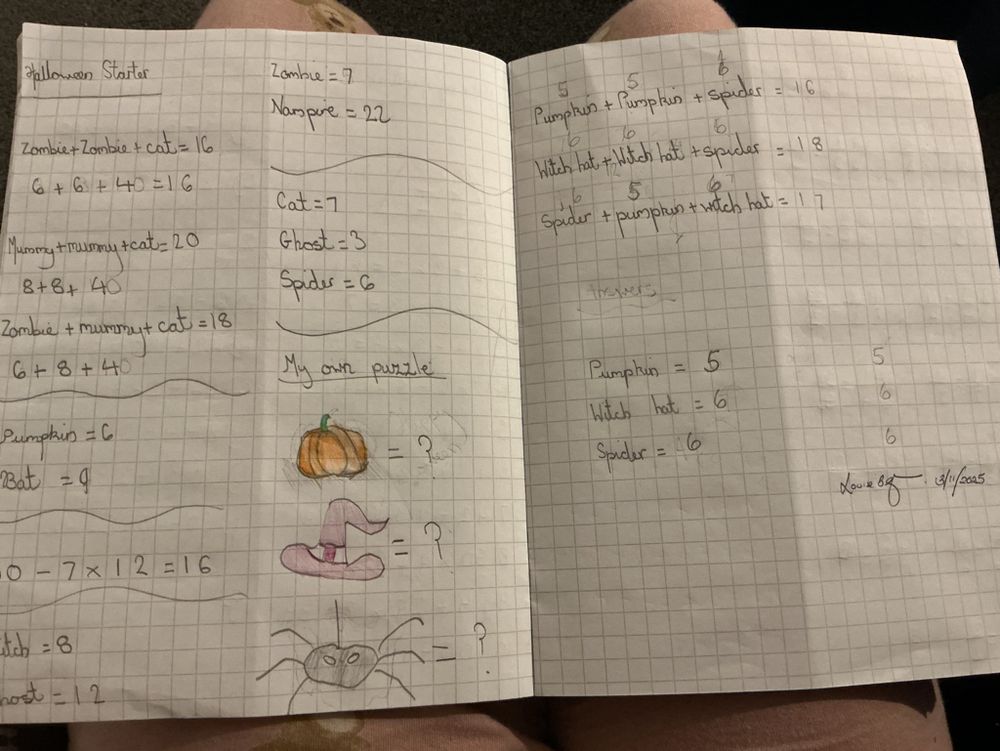 Halloween Starter
Zombie+Zombie+cat=16
6+6+40=16
Mummy+mummy+cat=20
8+8+ 40
Zombie +mummy+ cat =18
6+ 8 +40
Pumpkin =6
Bat =9
0-7×12=16
itch =8
host =12
Zombie =7
Nampire =22
Cat=7
Ghost=3
Spider=6
My own puzzle
= ?
= ?
= ?
5 5 6
Pumpkin + Pumpkin + spider = 16
6 6 6
Witch hat+Witch hat +spider = 18
6 5 6
Spider +pumpkin+witch hat=17
Answers
Pumpkin = 5 5
Witch hat = 6 6
Spider = 6 6
3/11/2025